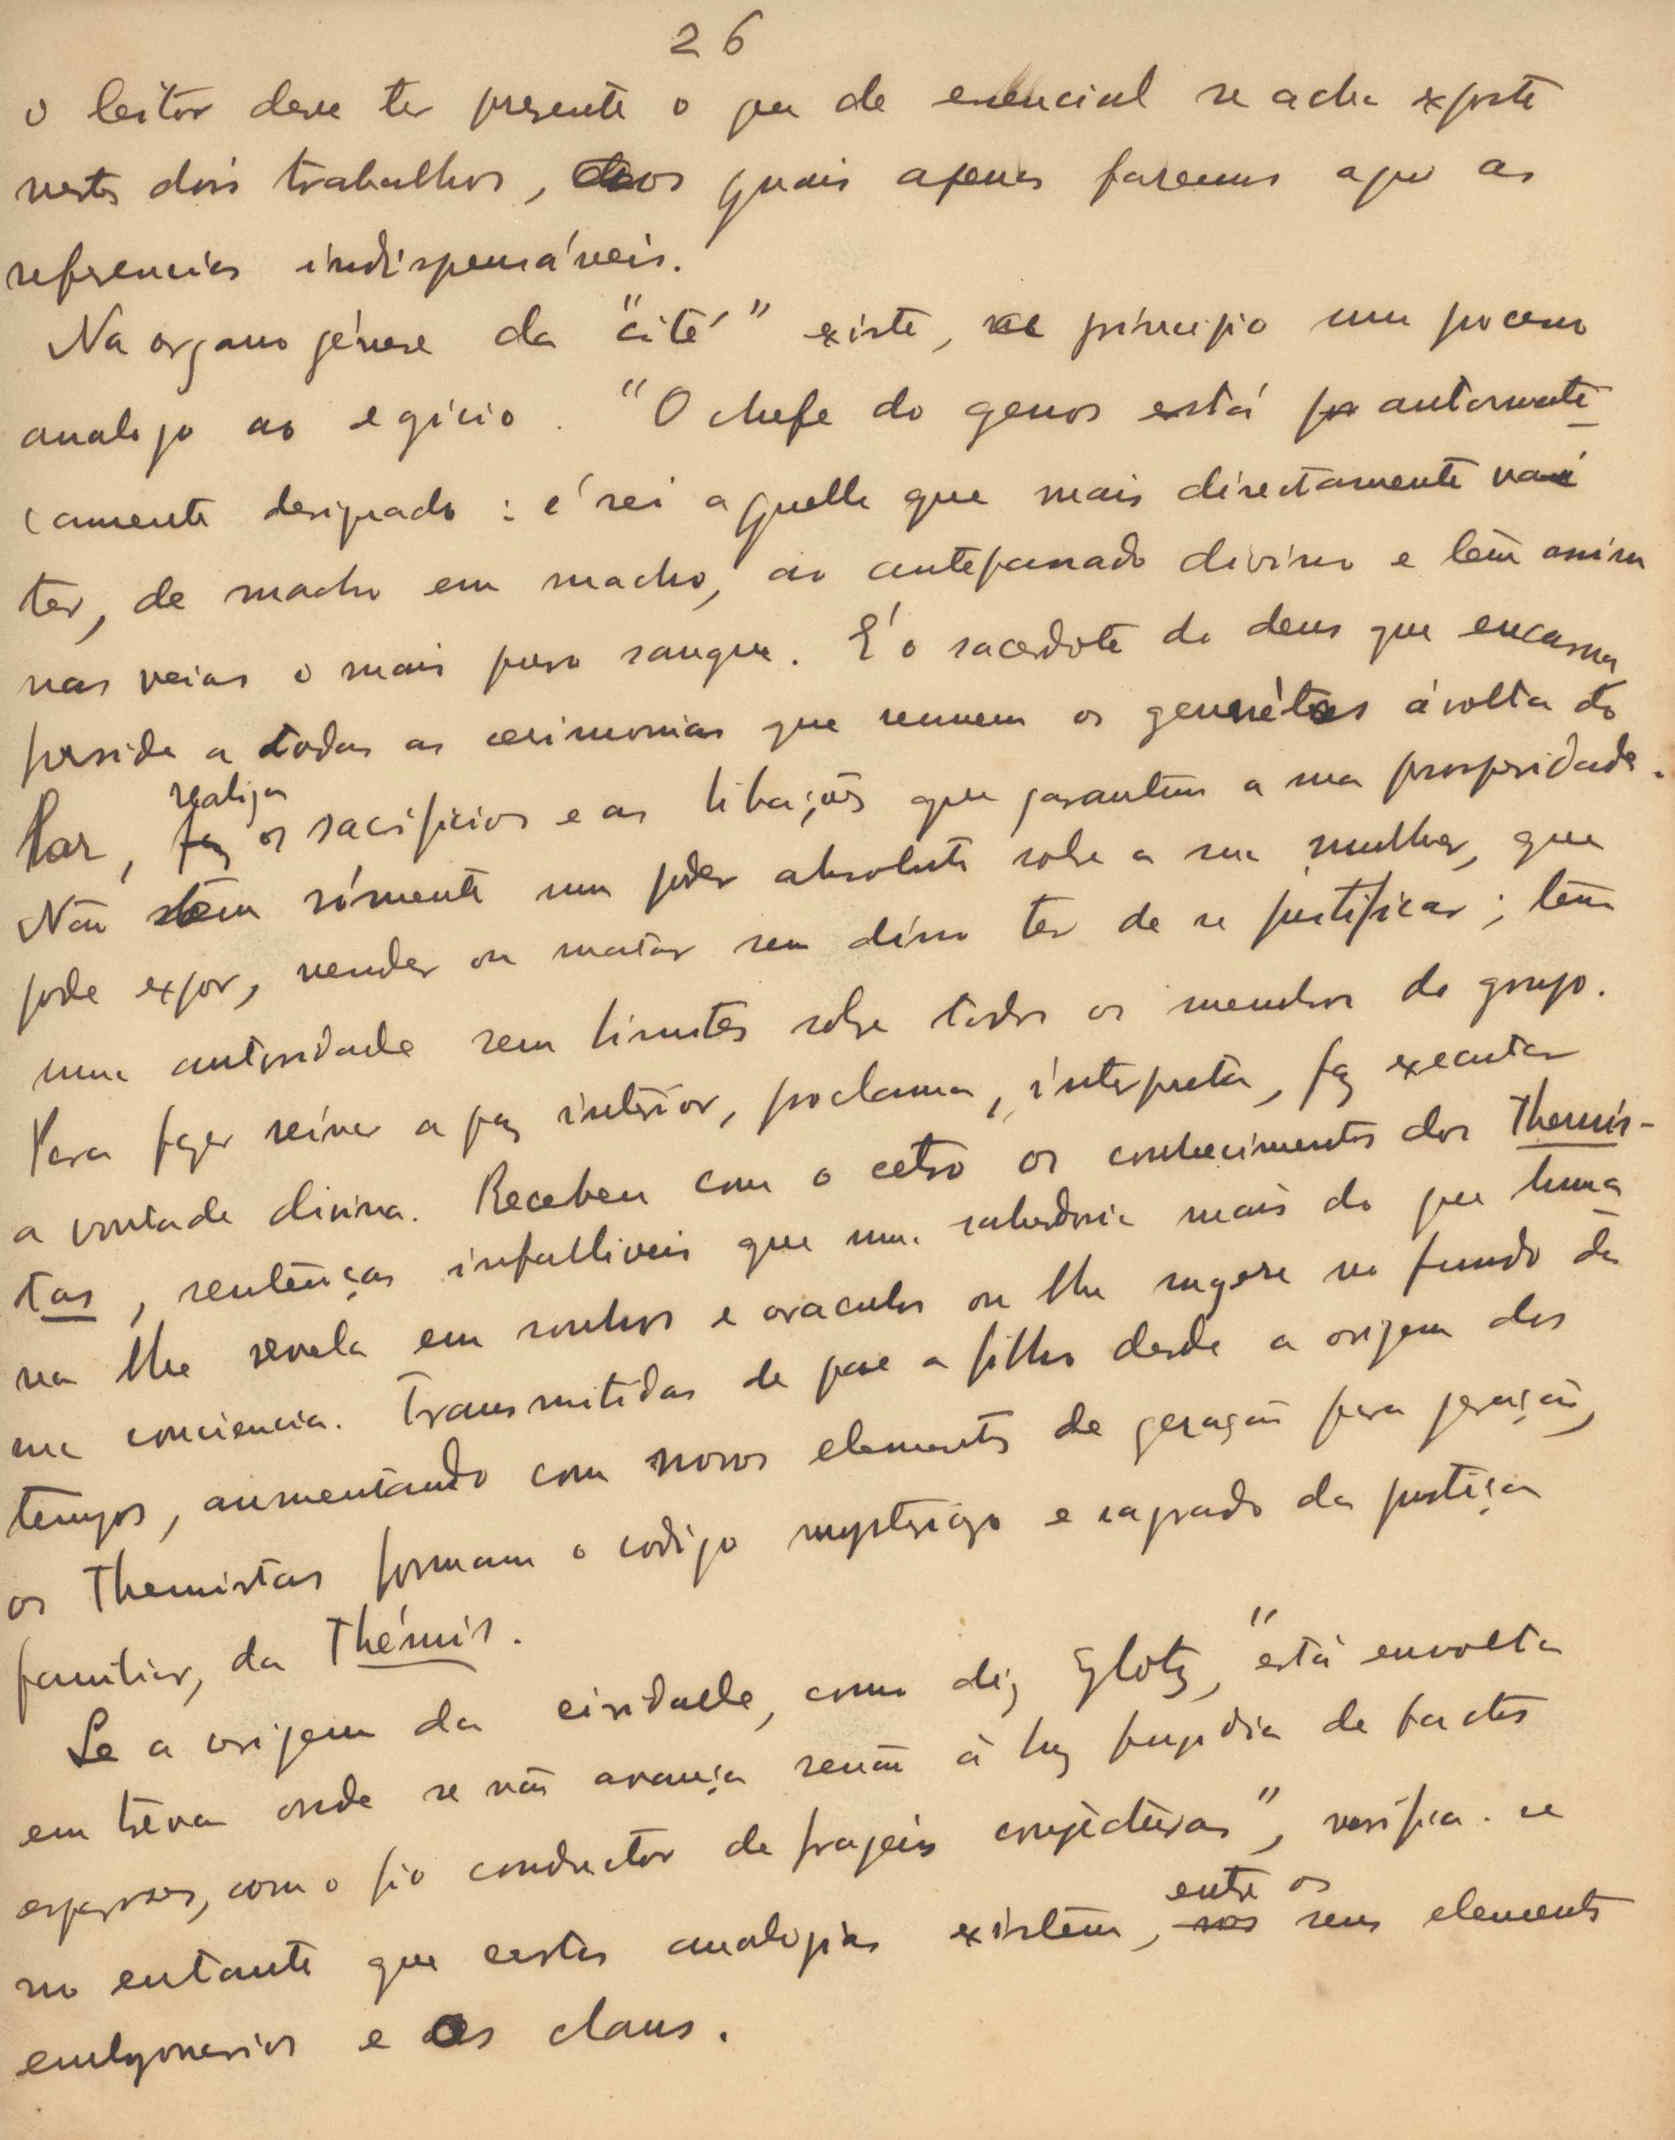 26
o leitor deve ter presente o que de essencial se acha exposto
nestes dois trabalhos, aos quais apenas faremos aqui as
referencias indispensáveis.
Na organogénese da "cité" existe, ao principio um processo
analogo ao egício. "O chefe do genos está automati-
camente designado: é rei aquelle que mais directamente vai
ter, de macho em macho, ao antepassado divino e tem assim
nas veias o mais puro sangue. É o sacerdote do deus que encarna
preside a todas as cerimonias que reunem os gennétes á volta do
lar, realiza os sacrificios e as libações que garantem a sua prosperidade.
Não tem sómente um poder absoluto sobre a sua mulher, que
pode expor, vender ou matar sem disso ter de se justificar; tem
uma autoridade sem limites sobre todos os membros do grupo.
Para fazer reinar a paz interior, proclama, interpreta, faz executar
a vontade divina. Recebeu com o cetro os conhecimentos dos Themis-
tas, sentenças infalliveis que uma sabedoria mais do que huma-
na lhe revela em sonhos e oraculos ou lhe sugere no fundo da
sua conciencia. Transmitidas de pae a filho desde a origem dos
tempos, aumentando com novos elementos de geração para geração,
os Themistas formam o codigo mysterioso e sagrado da justiça
familiar, da Thémis.
Se a origem da cividade, como diz Glotz, "está envolta
em treva onde se não avança senão á luz fugidia de factos
esparsos, com o fio conductor de frageis conjecturas", verifica-se
no entanto que certas analogias existem, entre os seus elementos
embryonarios e os clans.